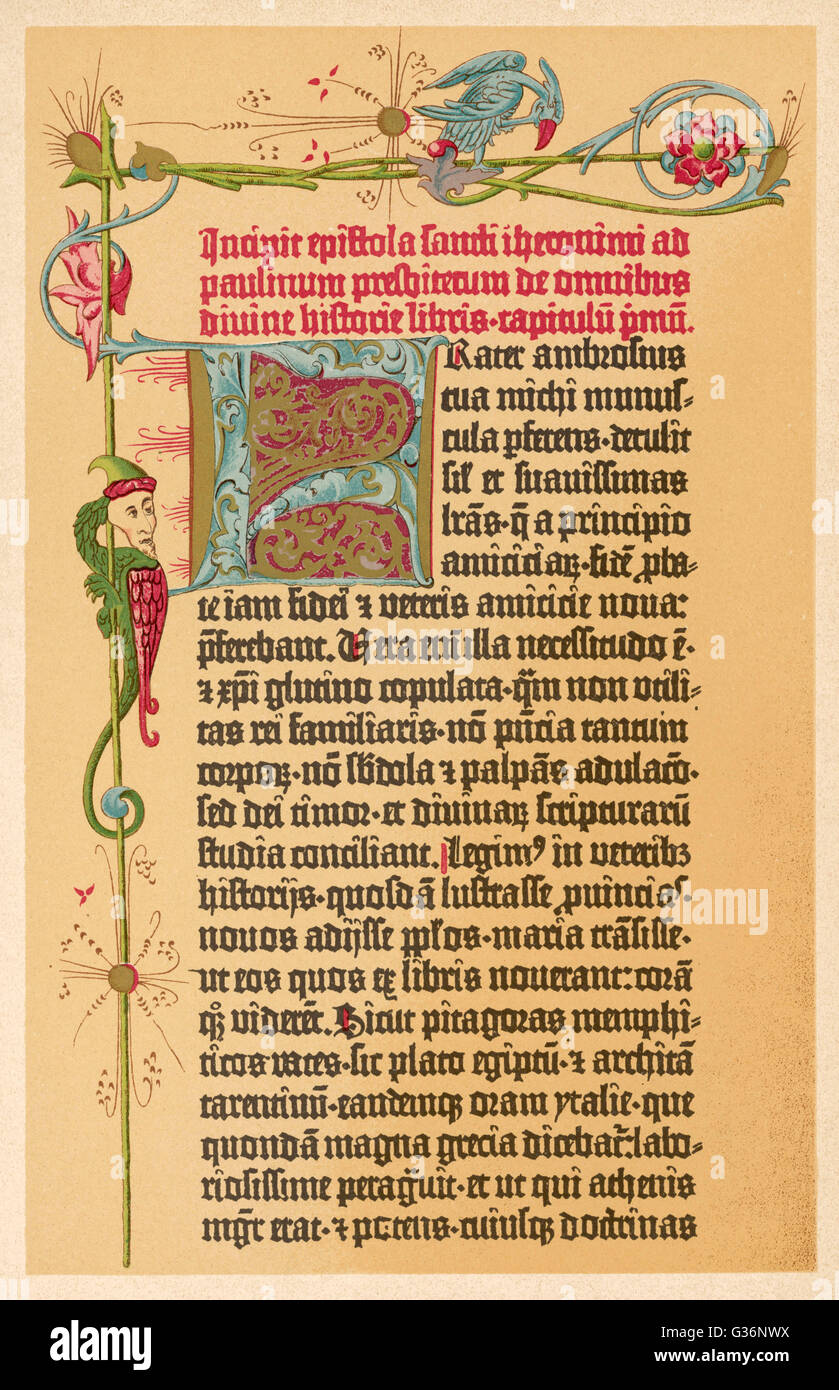 Incipit epistola sancti iheronimi ad
paulinum presbiterum de omnibus
divine historie libris·capitulū p̄mū.
Frater ambrosius
tua michi munus-
cula ꝑferens·detulit
sil' et suavissimas
lrās·q̄ a principio
amiciciaꝝ·fidē ꝓba-
te iam fidei ⁊ veteris amicicie nova:
p̄ferebant. Vera eni illa necessitudo ē·
⁊ xp̄i glutino copulata·q̄m non utili-
tas rei familiaris·nō p̄ncia tantum
corpoꝝ·nō sb̄dola ⁊ palpās adulacō·
sed dei timor·et divinaꝝ scripturarū
studia conciliant. Legimꝰ in veteribꝫ
historijs·quosdā lustrasse ꝓvincias·
novos adijsse ppl'os·maria trāsisse·
ut eos quos ex libris noverant: corā
qꝫ viderēt. Sicut pitagoras memphi-
ticos vates·sic plato egiptū·⁊ architā
tarentinū·eandemqꝫ oram ytalie·que
quondā magna grecia dicebat̄: labo-
riosissime peragvit·et ut qui athenis
mgr̄ erat·⁊ potens·cuiusqꝫ doctrinas
alamy
alamy stock photo
G36NWX
www.alamy.com